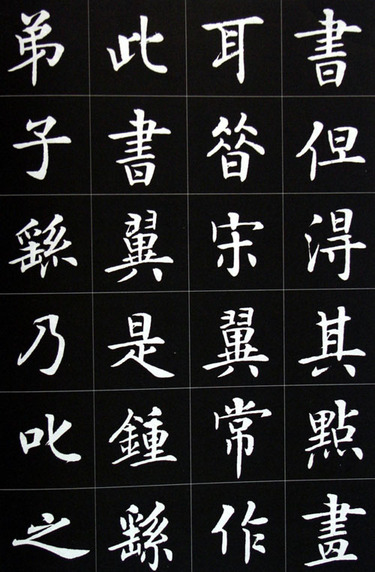 書但得其點畫
耳昔宋翼常作
此書翼是鍾繇
弟子繇乃叱之